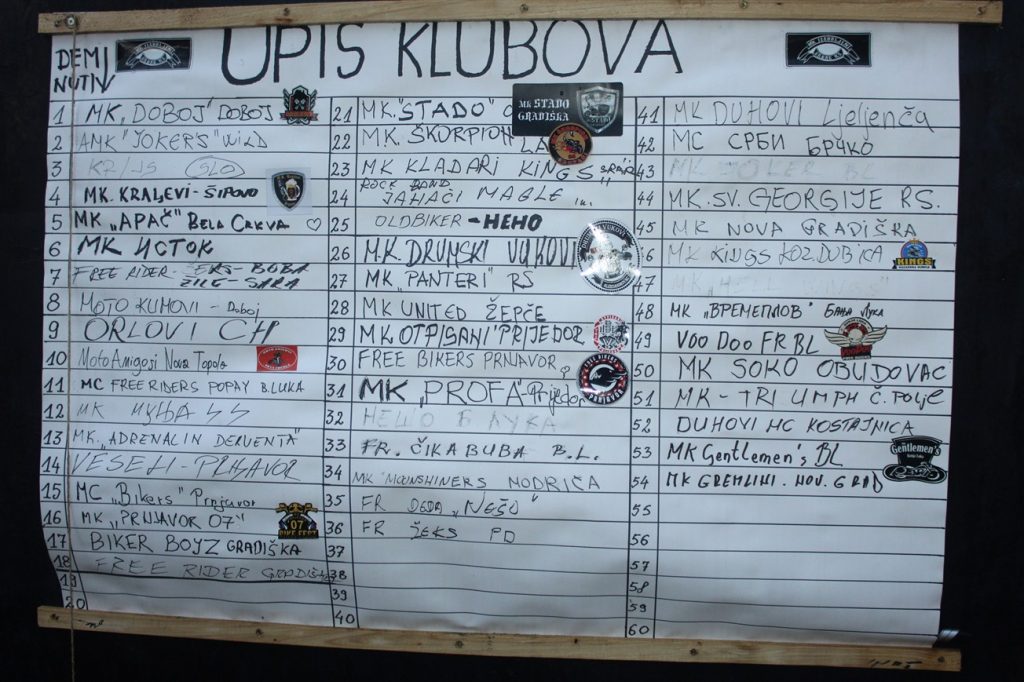 UPIS KLUBOVA
DEMI
NUTIV
1 MK "DOBOJ" DOBOJ
2 AMK "JOKERS" WILD
3 SLO
4 MK. KRALJEVI - ŠIPOVO
5 MK „APAČ" BELA CRKVA
6 MK ИСТОК
7 FREE RIDER - ŽEKS - BUBA
ŽILE - SARA
8 MOTO KUMOVI - Doboj
9 ORLOVI CH
10 MotoAmigosi Nova Topola
11 MC FREE RIDERS POPAY B.LUKA
12 MK МУЊА
13 MK. „ADRENALIN DERVENTA"
14 VESELI - PRNJAVOR
15 MC „Bikers" Prnjavor
16 MK „PRNJAVOR 07"
07
17 BIKER BOYZ GRADIŠKA
18 FREE RIDER GRADIŠKA
19
20
21 MK. "STADO"
MK STADO
GRADIŠKA
22 MK. ŠKORPION
23 MK KLADARI KINGS
24 ROCK BAND
JAHAČI MAGLE
25 OLDBIKER - HEHO
26 M.K. DRUMSKI VUKOVI
27 MK "PANTERI" RS
28 MK UNITED ŽEPČE
29 MK OTPISANI PRIJEDOR
30 FREE BIKERS PRNJAVOR
31 MK „PROFA" Prijedor
32 HELLO B ЛУКА
33 FR. ČIKA BUBA B.L.
34 MK "MOONSHINERS MODRIČA
35 FR DEDA „NEŠO"
36 FR ŽEKS PD
37
38
39
40
41 MK DUHOVI Ljeljenča
42 MC СРБИ БРЧКО
43 BL
44 MK. SV. GEORGIJE RS.
45 MK NOVA GRADIŠKA
46 MK KINGS KOZ. DUBICA
KINGS
47
48 MK „ВРЕМЕПЛОВ" БАЊА ЛУКА
49 VOO DOO FR BL
50 MK SOKO OBUDOVAC
51 MK - TRIUMPH Č. POLJE
52 DUHOVI MC KOSTAJNICA
53 MK Gentlemen's BL
Gentlemen's
54 MK GREMLINI. NOV. GRAD
55
56
57
58
59
60